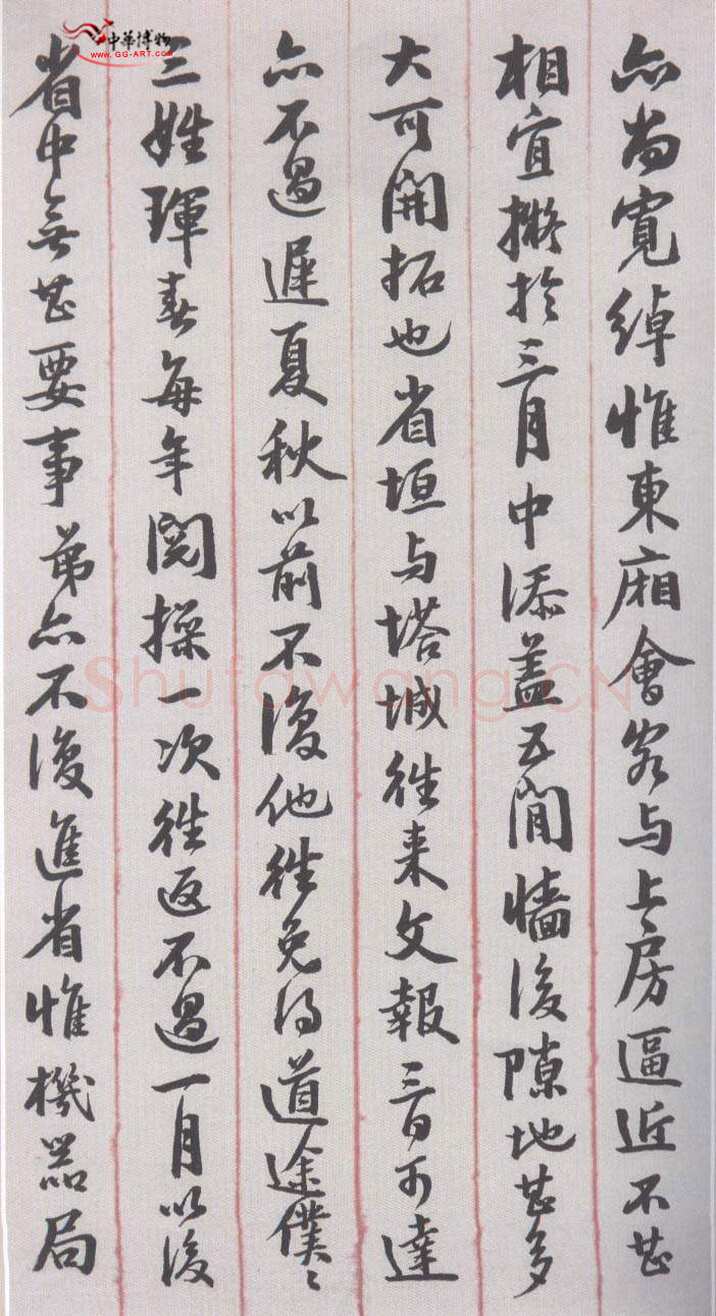 亦尚寬綽惟東廂會客与上房逼近不甚
相宜擬於三月中添蓋五間牆後隙地甚多
大可開拓也省垣与塔城往来文報三日可達
亦不過遲夏秋以前不復他往免得道途僕〻
三姓琿春每年閱操一次往返不過一月以後
省中無甚要事弟亦不復進省惟機器局
中華博物
www.GG-ART.COM
Shufawang.CN